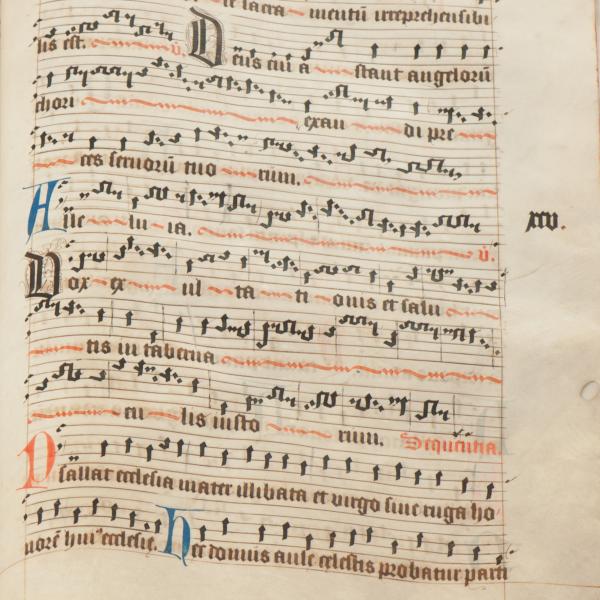 te sacra mentū irreprehensibi
lis est. v̄. Deus cui a stant angelorū
chori exau di pre
ces seruorū tuo rum.
Alle lu ia. v̄.
xcv.
Vox ex ul ta ti onis et salu
tis in taberna
cu lis iusto rum. Sequentia.
Psallat ecclesia mater illibata et virgo sine ruga ho
norē hui⁹ ecclesie. Hec domus aule celestis probatur parti